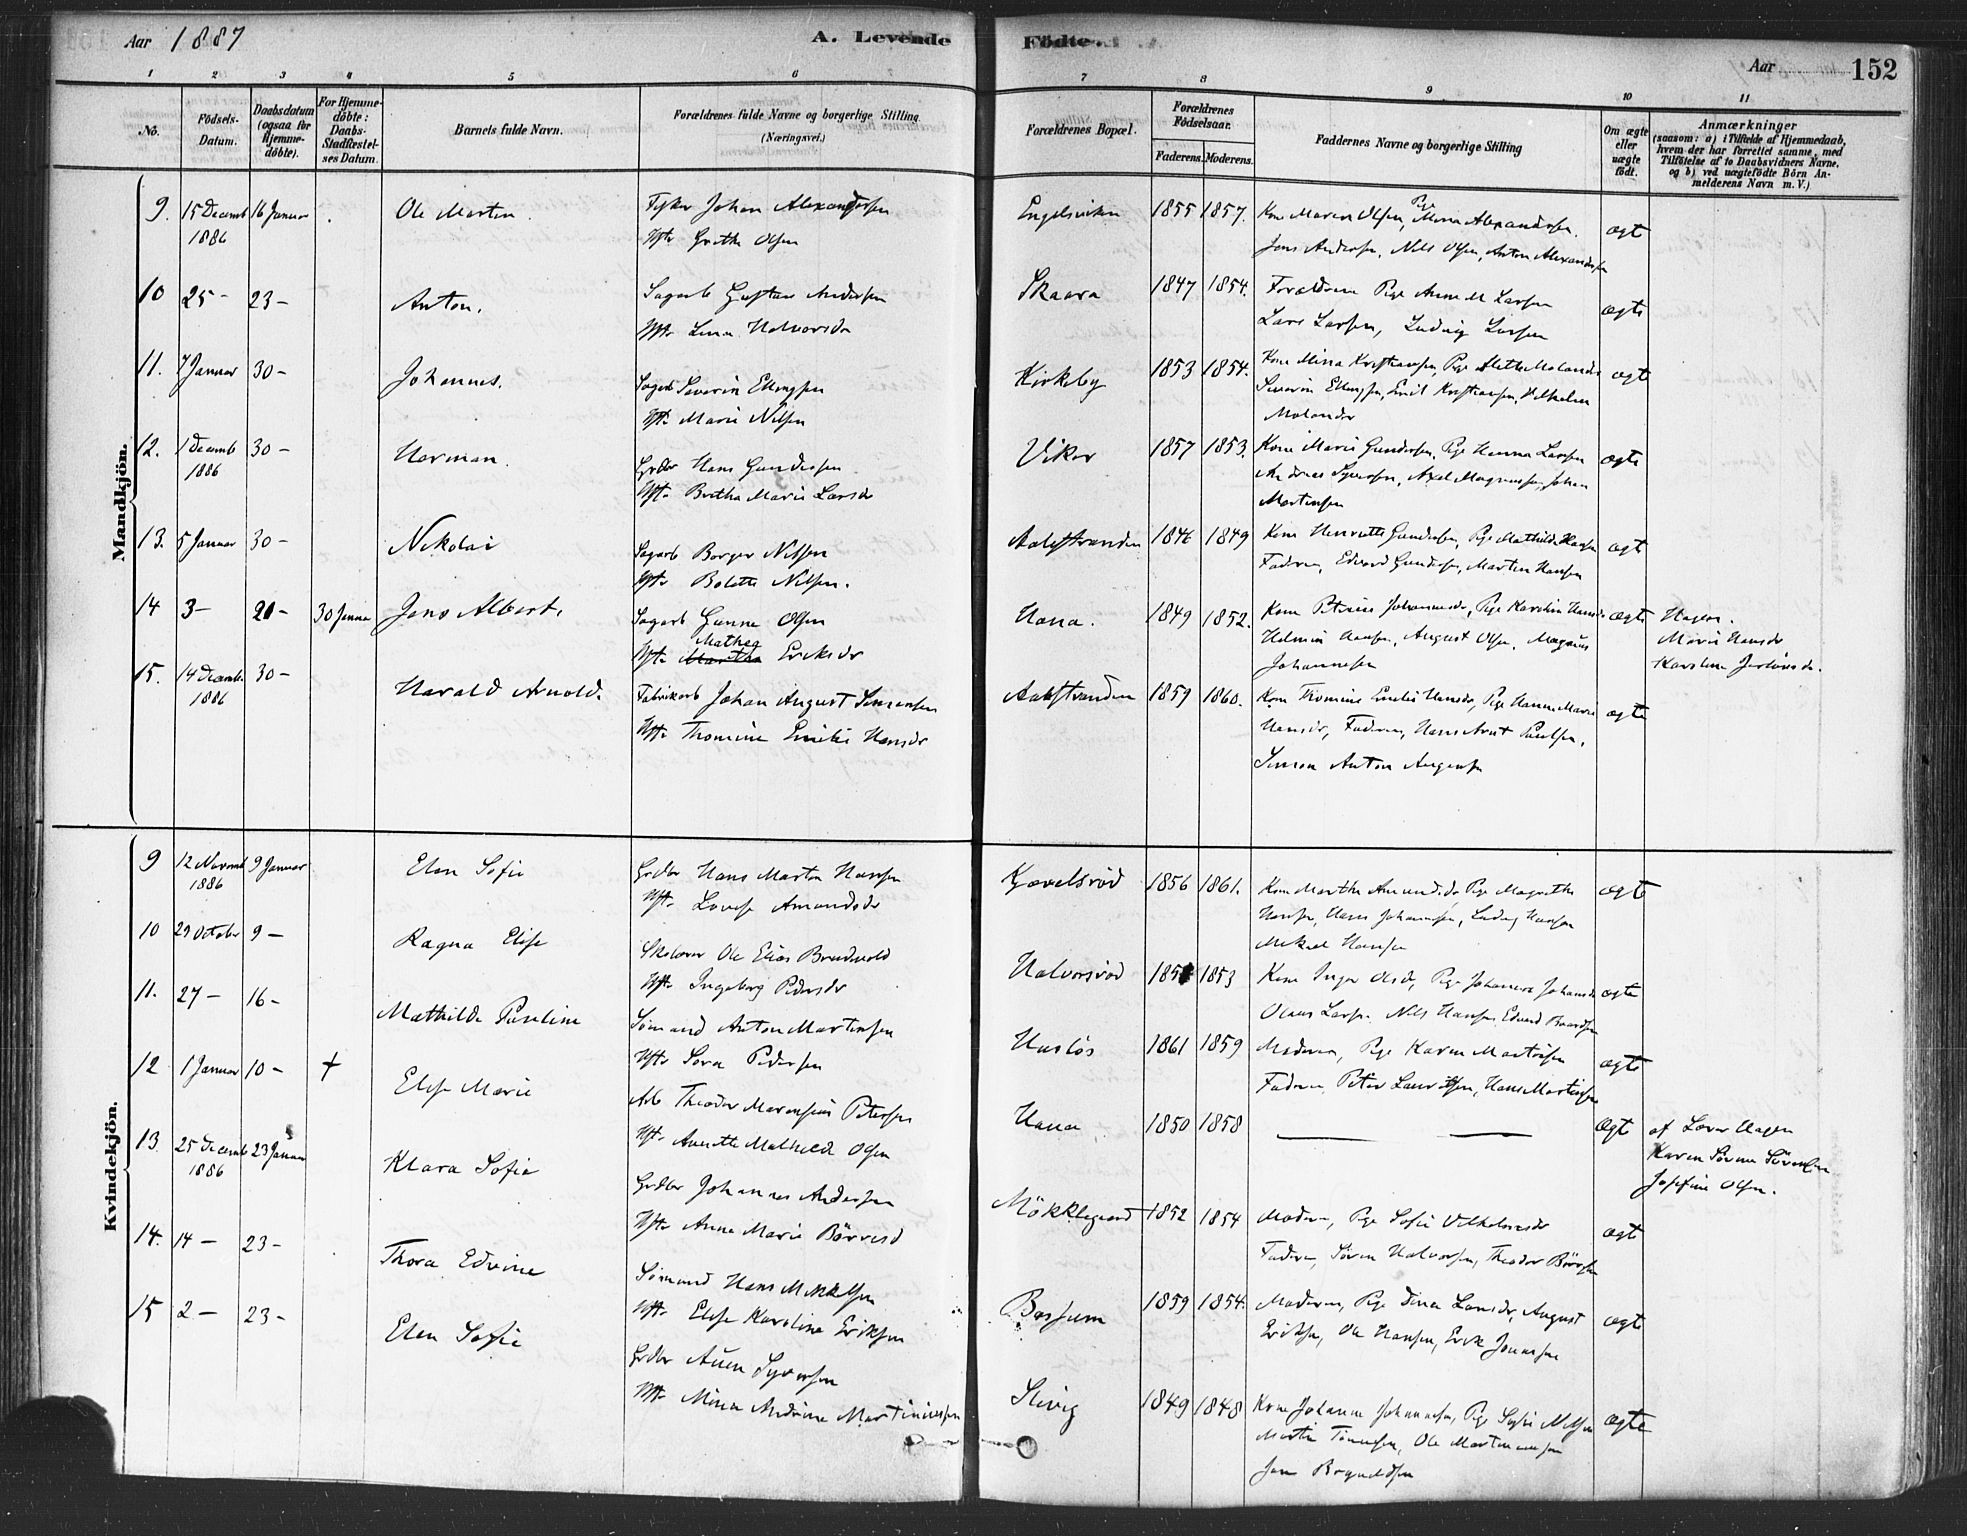 Aar 1887 A. Levende Födte. Aar 152
1 2 3 4 5 6 7 8 9 10 11
No.
Födsels-Datum.
Daabsdatum (ogsaa for Hjemme-döbte).
For Hjemme-döbte: Daabs-Stadfæstel-ses Datum.
Barnets fulde Navn.
Forældrenes fulde Navne og borgerlige Stilling.
(Næringsvei.)
Forældrenes Bopæl.
Forældrenes Födselsaar.
Faderens. Moderens.
Faddernes Navne og borgerlige Stilling
Om ægte eller uægte födt.
Anmærkninger
(saasom: a) i Tilfælde af Hjemmedaab,
hvem der har forrettet samme, med
Tilföielse af to Daabsvidners Navne,
og b) ved uægtefödte Börn An-
melderens Navn m. V.)
Mandkjön.
9. 15 Decemb 1886 16 Januar Ole Martin Johan Alexandersen
Hst. Grethe Olsen
Engelsviken 1855 1857. Kone Maren Olsen, Pige Mina Alexandersen.
Jens Andersen, Nils Olsen, Anton Alexandersen
ægt
10 25 - 23 - Anton. Sagarb Gustav Andersen
Hst. Lina Halvorsdr
Skaara 1847 1854. Forældrene Pige Anne M Larsen
Lars Larsen, Ludvig Larsen
ægte
11. 7 Januar 30 - Johannes. Sagarb Severin Ellingsen
Hst. Marie Nilsen
Kirkeby 1853 1854. Kone Mina Kristiansen, Pige Molander
Severin Ellingsen, Emil Kristiansen, Vilhelm
Molander
ægte
12. 1 Decemb 1886 30 - Herman. Grdbr Hans Gundersen
Hst. Bertha Marie Larsdr
Viker 1857 1853. Kone Marie Gundersen, Pige Hanna Larsen
Andreas Syversen, Axel Magnussen, Johan
Martinsen
ægte
13. 5 Januar 30 - Nikolai Sagarb Borger Nilsen
Hst. Bolette Nilsen.
Aalestranden 1846 1849 Kone Henriette Gundersen, Pige Mathilde Hansen
Faderen, Edvard Gundersen, Martin Hansen
ægt
14 3 - 21 - 30 Januar Jens Albert. Sagarb Gunne Olsen
Mathea
Hst. Martha Eriksdr
Hana. 1849 1852. Kone Petrine Johannesdr, Pige Karoline Hansdr
August Olsen, Magnus
Johannesen
ægte Hagen.
Marie Hansdr
15. 14 Decemb. 1886 30 - Harald Arnold. Fabrikarb Johan August Simensen
Hst. Thomine Emilie Hansdr
Aalestranden 1859 1860. Kone Thomine Emilie Hansdr, Pige Hanne Marie
Hansdr, Faderen, Hans Arnt Paulsen,
Simen Anton Augensen
ægte
Kvindekjön.
9 12 Novemb 1886 9 Januar Elen Sofie Grdbr Hans Martin Hansen
Hst. Lovise Amundsdr
Gjævelsröd 1856 1861. Kone Marthe Amundsdr Pige Magrethe
Hansen, Hans Johannesen, Ludvig Hansen
Mikael Hansen
ægte
10 29 October 9 - Ragna Elise Skolærer Ole Elias Brudvold
Hst. Ingeborg Pedersdr
Halvorsröd 1853 Kone Inger Olsdr, Pige Johanna Johansdr
Olaus Larsen. Nils Hansen, Edvard Baardsen
ægte
11. 27 - 16 - Mathilde Pauline Sömand Anton Martinsen
Hst. Sara Pedersen
Huslös 1861 1859 Moderen, Pige Karen Martinsen
Faderen, Peter Lauritsen, Hans Martinsen
ægte
12 1 Januar 10 - † Elise Marie Arb Theodor Marensius Petersen
Hst. Annette Mathilde Olsen
Hana 1850 1858 — — ægt af Lærer Hagen
Karen Sörine Sörensen
Josefine Olsen.
13. 25 Decemb 1886 23 Januar Klara Sofie Grdbr Johannes Andersen
Hst. Anna Marie Börresd
Mökklegaard 1852 1854 Moderen, Pige Sofie Vilhelmsdr
Faderen, Sören Halvorsen, Theodor Börresen
ægt
14. 14 - 23 - Thora Edvine Sömand Hans Mikkelsen
Hst. Elise Karoline Eriksen
Bossum 1859 1854. Moderen, Pige Dina Larsdr, August
Eriksen, Ole Hansen, Erik Jonassen
ægte
15 2 - 23 - Elen Sofie Grdbr Aven Syversen
Hst. Mina Andrine Martiniussen
Slevig 1849 1848 Kone Johanne Johannesen, Pige Sofie Nilsen
Martin Tönnesen, Ole Martiniussen
Jens Brynildsen
ægte